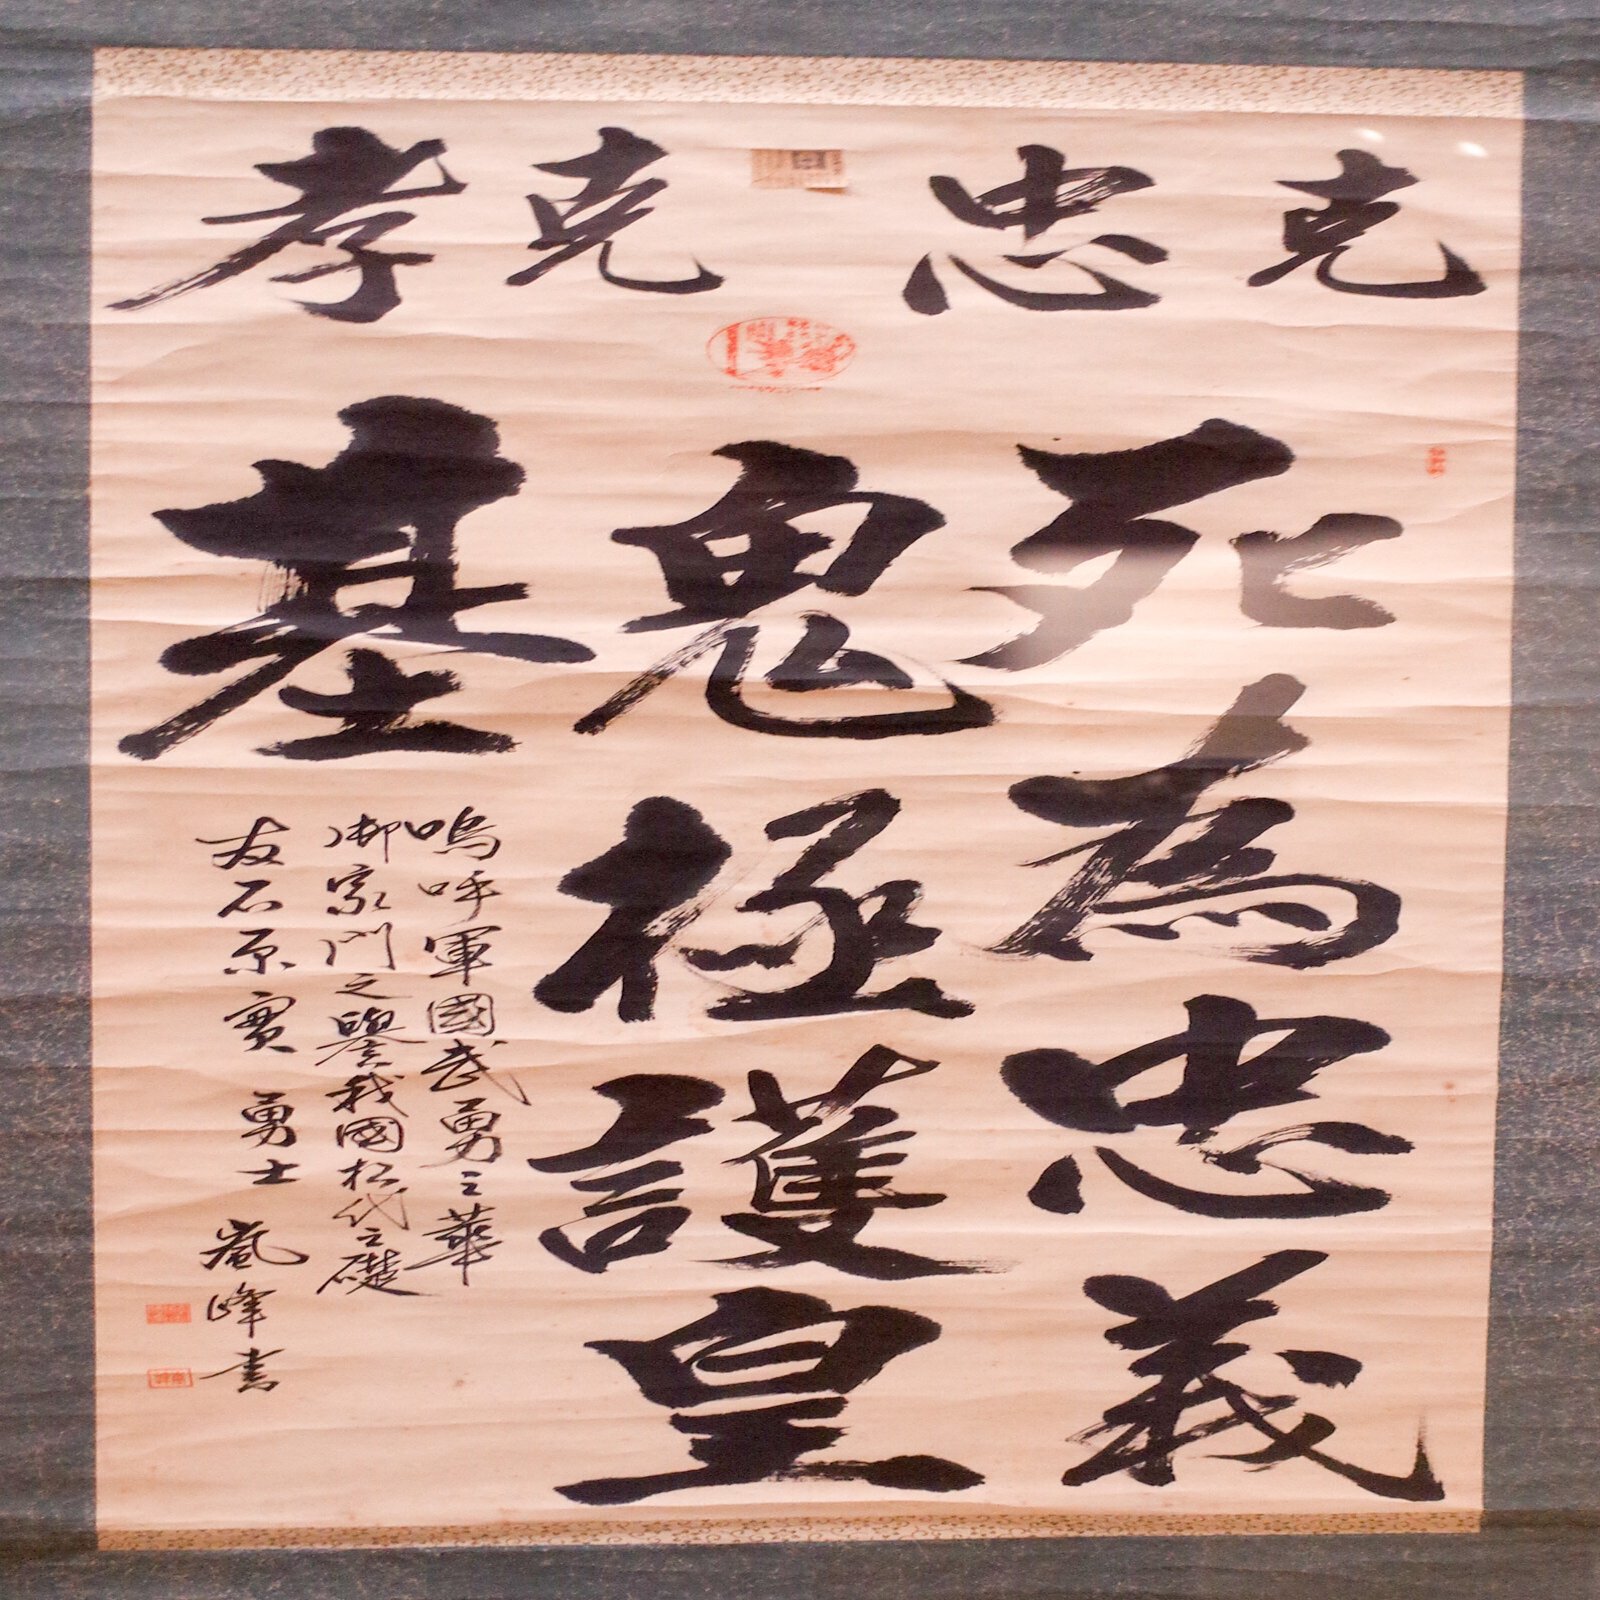 克忠克孝
死為忠義
鬼極護皇
基
嗚呼軍國武勇之華
御家門之譽我國松代之礎
友石原實 勇士 嵐峰書